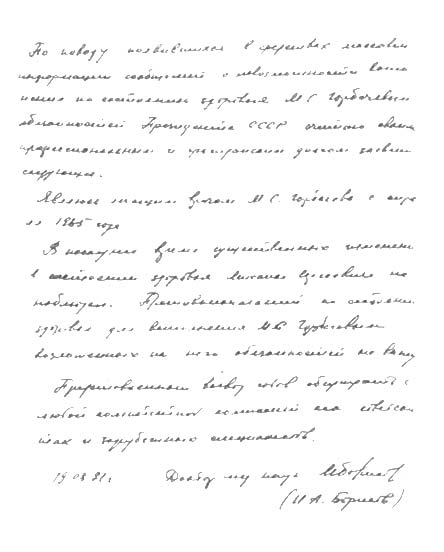 По поводу появившихся в средствах массовой
информации сообщений о невозможности выпол
нения по состоянию здоровья М.С. Горбачевым
обязанностей Президента СССР считаю своим
профессиональным и гражданским долгом заявить
следующее.
Являюсь лечащим врачом М.С. Горбачева с апре
ля 1985 года
В настоящее время существенных изменений
в состоянии здоровья Михаила Сергеевича не
наблюдаю. Противопоказаний по состоянию
здоровья для выполнения М.С. Горбачевым
возложенных на него обязанностей не вижу
вывод готов обсуждать с
любой компетентной комиссией из советских
и зарубежных специалистов.
19 08 91 г. Доктор мед наук
(И А. Борисов)